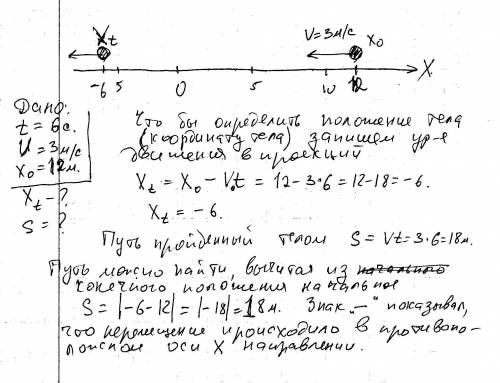 Xt V=3м/с X₀
-6 5 0 5 10 12 X
Дано:
t = 6с.
V = 3м/с
X₀ = 12м.
Xt - ?
S = ?
Что бы определить положение тела
(координату тела) запишем ур-е
движения в проекций
Xt = X₀ - V₀t = 12 - 3·6 = 12 - 18 = -6.
Xt = -6.
Путь пройденный телом S = Vt = 3·6 = 18м.
Путь можно найти, вычитая из начального
конечного положения начальное
S = |-6-12| = |-18| = 18м. Знак „-" показывал,
что перемещение происходило в противопо-
ложном оси X направлении.